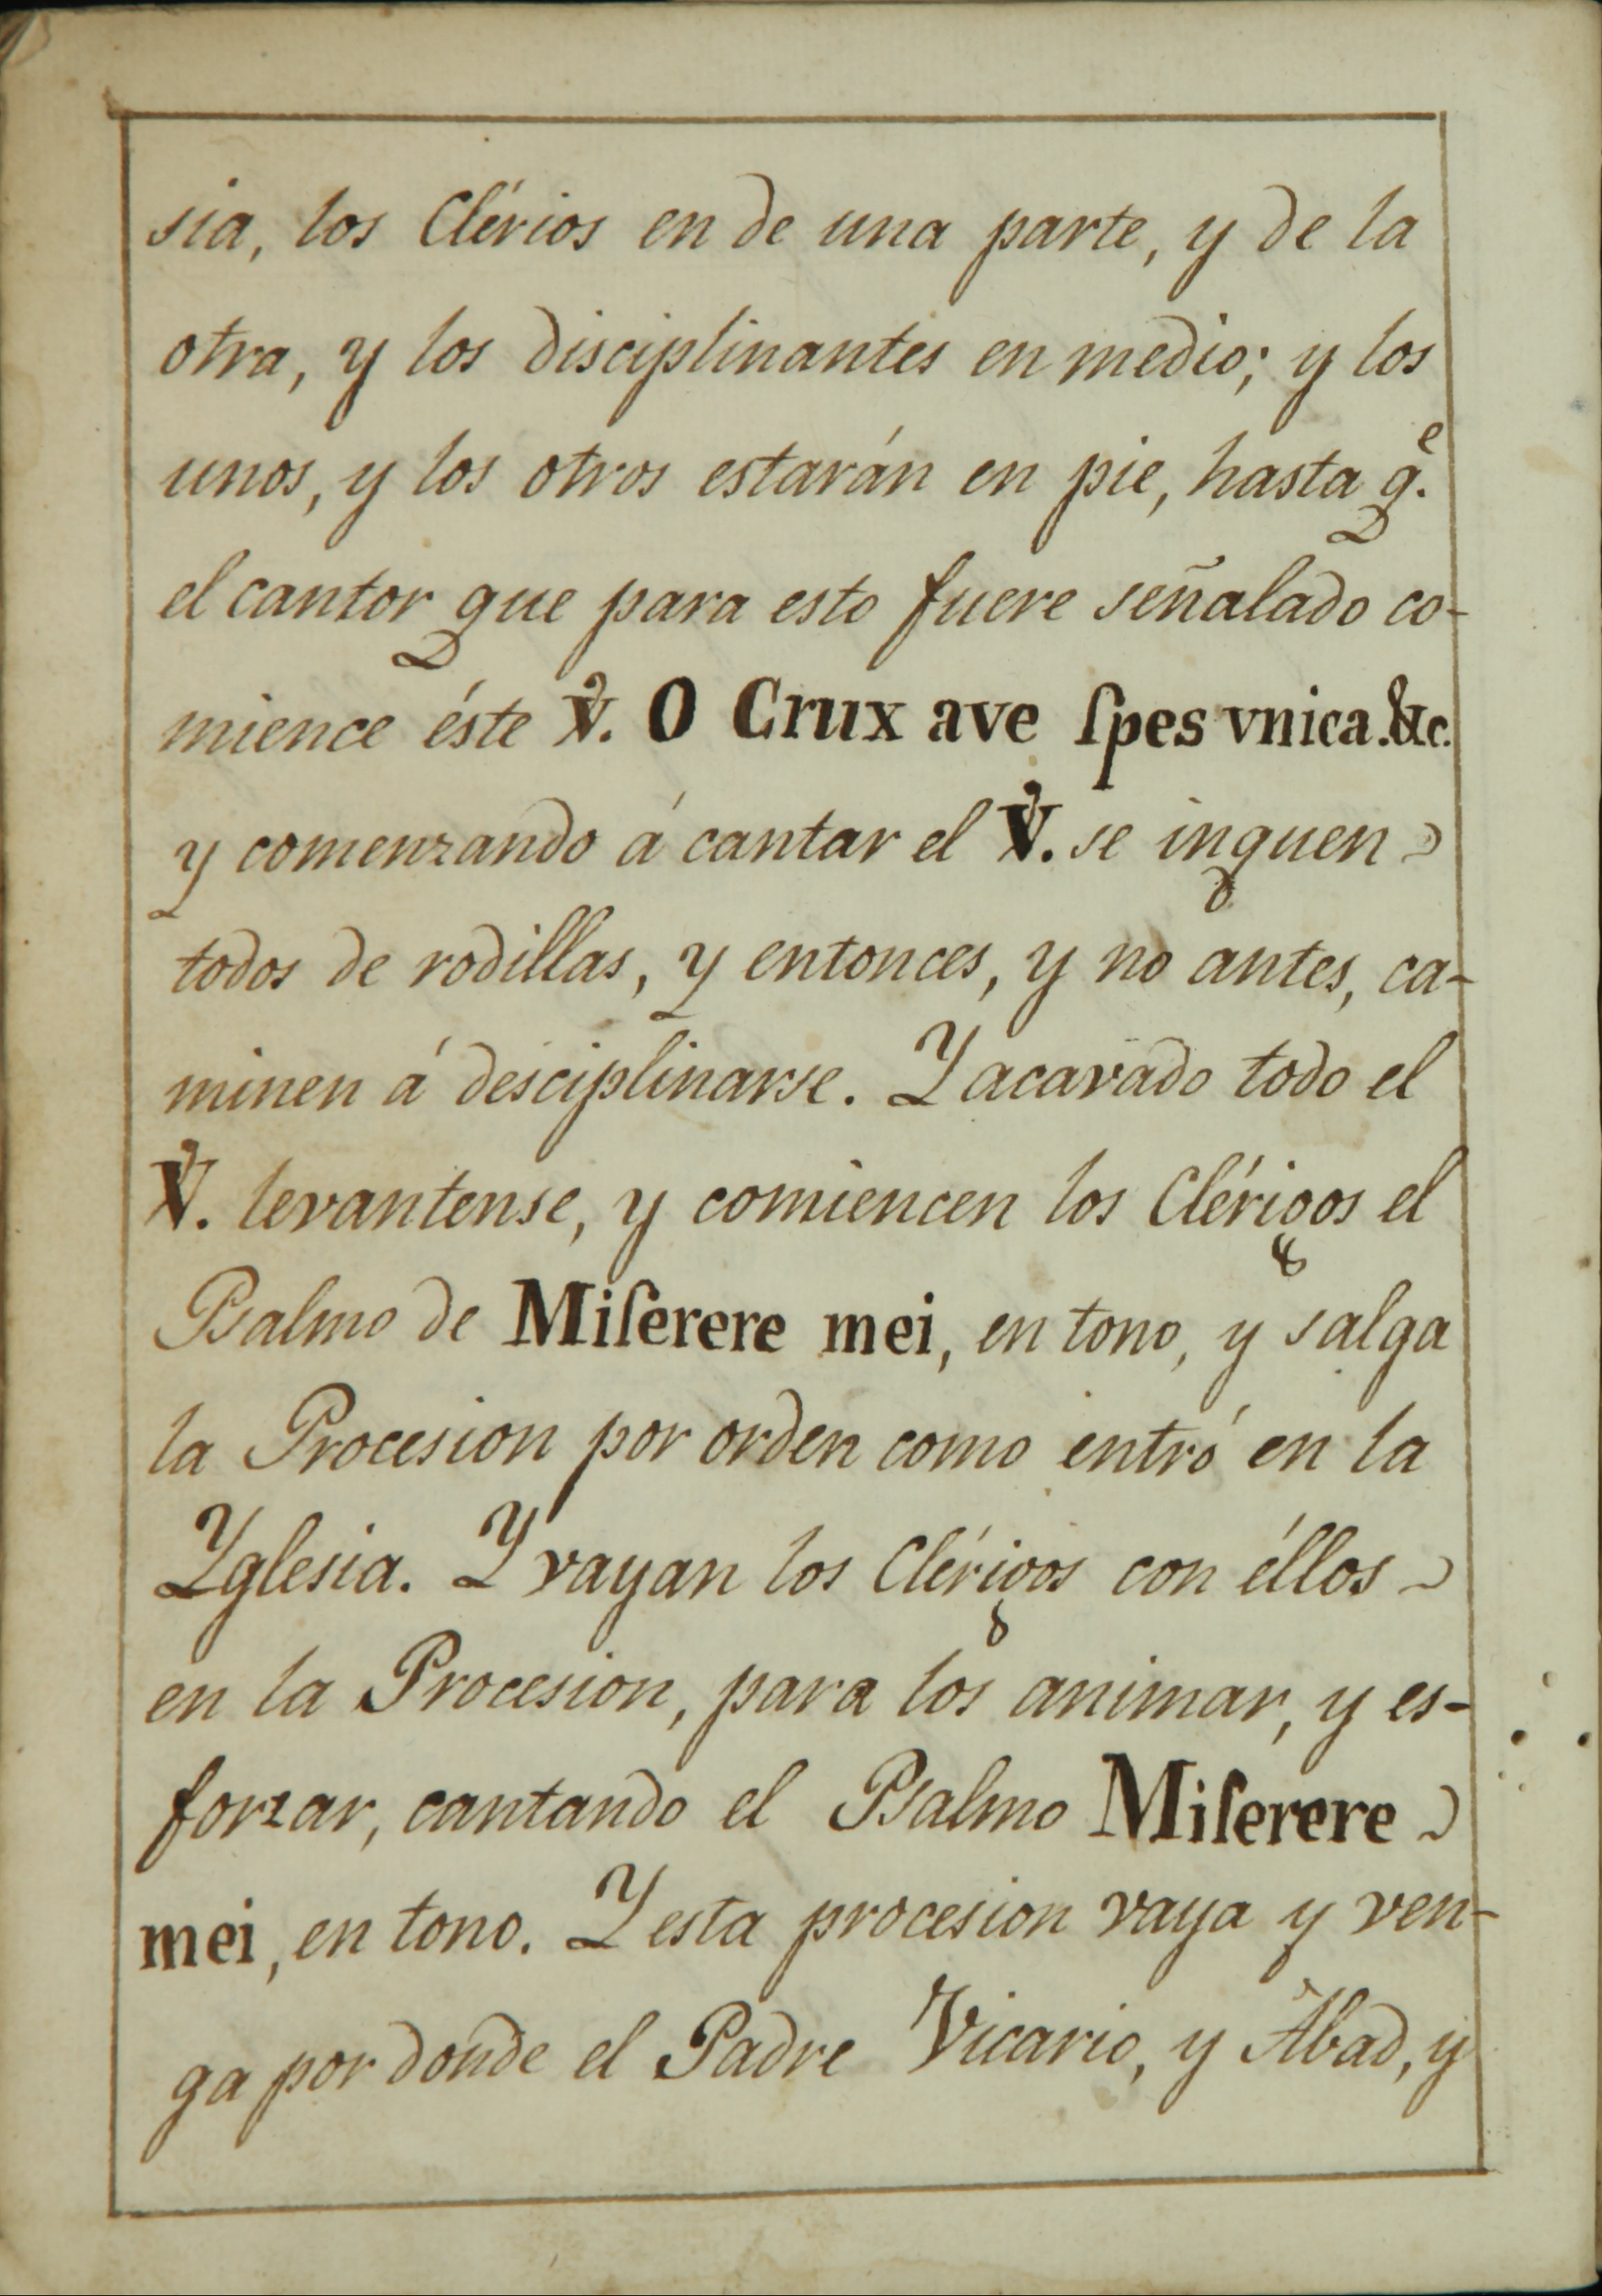 sia, los Clérios en de una parte, y de la
otra, y los disciplinantes en medio; y los
unos, y los otros estarán en pie, hasta q.ᵉ
el cantor que para esto fuere señalado co-
mience éste ℣. O Crux ave ſpes vnica.&c.
y comenzando á cantar el ℣. se inquen
todos de rodillas, y entonces, y no antes, ca-
minen á desciplinarse. Y acavado todo el
℣. levantense, y comiencen los Clérigos el
Psalmo de Miſerere mei, en tono, y salga
la Procesion por orden como entró en la
Yglesia. Y vayan los Clérigos con éllos
en la Procesion, para los animar, y es-
forzar, cantando el Psalmo Miſerere
mei, en tono. Y esta procesion vaya y ven-
ga por donde el Padre Vicario, y Abad, y